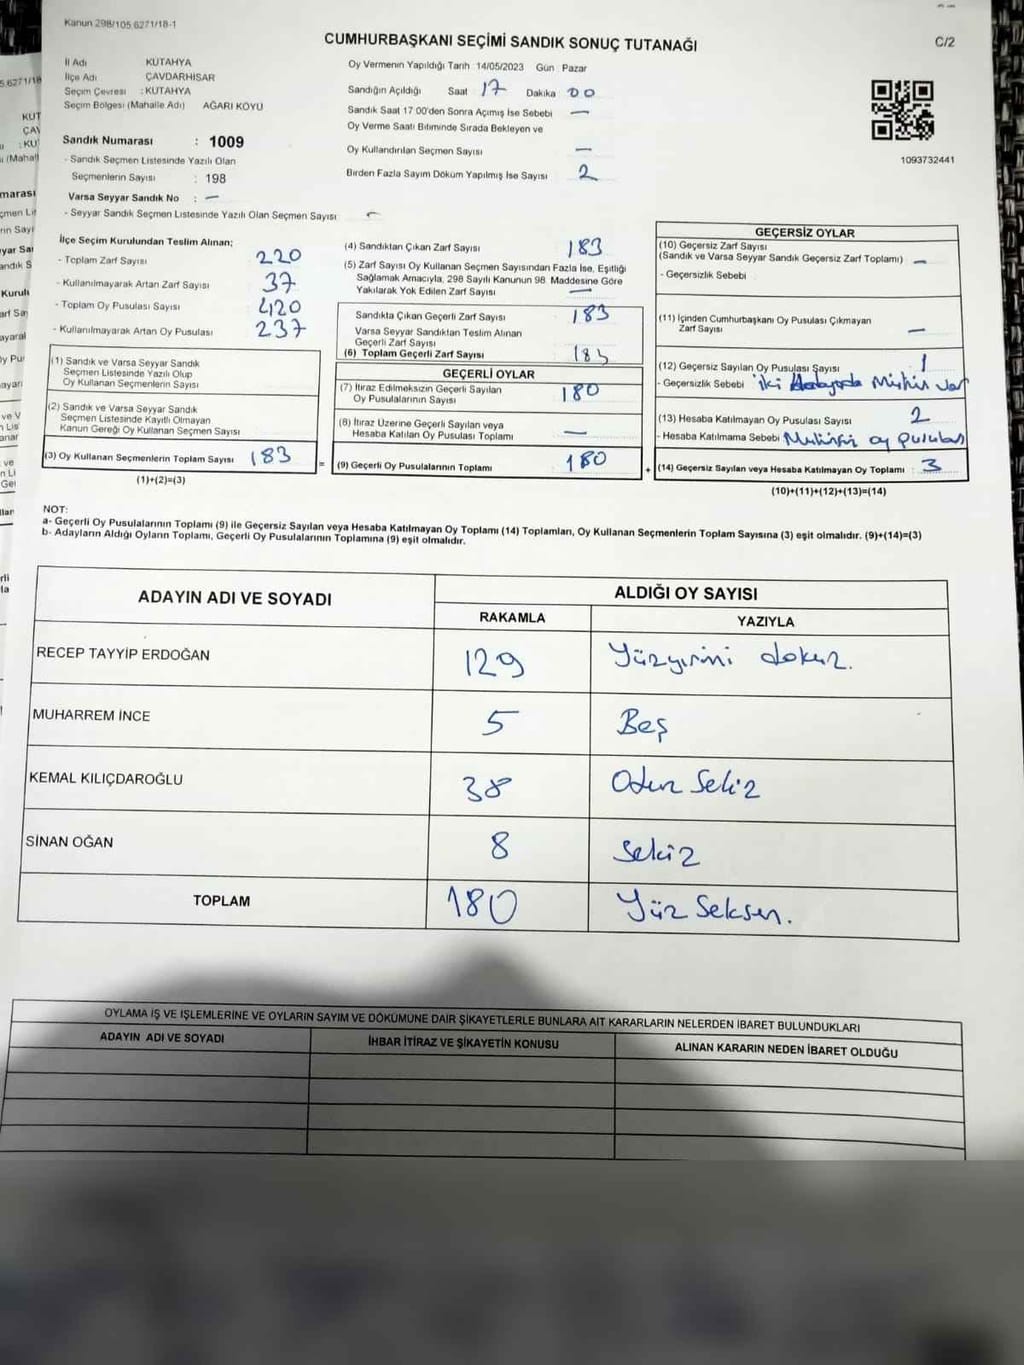 Kanun 298/105 6271/18-1
CUMHURBAŞKANI SEÇİMİ SANDIK SONUÇ TUTANAĞI
C/2
İl Adı KUTAHYA
İlçe Adı ÇAVDARHISAR
Seçim Çevresi : KUTAHYA
Seçim Bölgesi (Mahalle Adı) AĞARI KÖYÜ
Sandık Numarası : 1009
- Sandık Seçmen Listesinde Yazılı Olan
Seçmenlerin Sayısı : 198
Varsa Seyyar Sandık No : —
- Seyyar Sandık Seçmen Listesinde Yazılı Olan Seçmen Sayısı
Oy Vermenin Yapıldığı Tarih : 14/05/2023 Gün : Pazar
Sandığın Açıldığı Saat 17 Dakika 00
Sandık Saat 17:00'den Sonra Açımış İse Sebebi —
Oy Verme Saati Bitiminde Sırada Bekleyen ve
Oy Kullandırılan Seçmen Sayısı —
Birden Fazla Sayım Döküm Yapılmış İse Sayısı 2
1093732441
İlçe Seçim Kurulundan Teslim Alınan;
- Toplam Zarf Sayısı 220
- Kullanılmayarak Artan Zarf Sayısı 37
- Toplam Oy Pusulası Sayısı 420
- Kullanılmayarak Artan Oy Pusulası 237
(1) Sandık ve Varsa Seyyar Sandık
Seçmen Listesinde Yazılı Olup
Oy Kullanan Seçmenlerin Sayısı
(2) Sandık ve Varsa Seyyar Sandık
Seçmen Listesinde Kayıtlı Olmayan
Kanun Gereği Oy Kullanan Seçmen Sayısı
(3) Oy Kullanan Seçmenlerin Toplam Sayısı 183
(1)+(2)=(3)
(4) Sandıktan Çıkan Zarf Sayısı 183
(5) Zarf Sayısı Oy Kullanan Seçmen Sayısından Fazla İse, Eşitliği
Sağlamak Amacıyla, 298 Sayılı Kanunun 98. Maddesine Göre
Yakılarak Yok Edilen Zarf Sayısı —
Sandıkta Çıkan Geçerli Zarf Sayısı 183
Varsa Seyyar Sandıktan Teslim Alınan
Geçerli Zarf Sayısı
(6) Toplam Geçerli Zarf Sayısı 183
GEÇERLİ OYLAR
(7) İtiraz Edilmeksizin Geçerli Sayılan
Oy Pusulalarının Sayısı 180
(8) İtiraz Üzerine Geçerli Sayılan veya
Hesaba Katılan Oy Pusulası Toplamı —
=
(9) Geçerli Oy Pusulalarının Toplamı 180
+
GEÇERSİZ OYLAR
(10) Geçersiz Zarf Sayısı
(Sandık ve Varsa Seyyar Sandık Geçersiz Zarf Toplamı) —
- Geçersizlik Sebebi
(11) İçinden Cumhurbaşkanı Oy Pusulası Çıkmayan
Zarf Sayısı —
(12) Geçersiz Sayılan Oy Pusulası Sayısı 1
- Geçersizlik Sebebi iki Mühür var
(13) Hesaba Katılmayan Oy Pusulası Sayısı 2
- Hesaba Katılmama Sebebi Mühürsüz oy pusulası
(14) Geçersiz Sayılan veya Hesaba Katılmayan Oy Toplamı : 3
(10)+(11)+(12)+(13)=(14)
NOT:
a- Geçerli Oy Pusulalarının Toplamı (9) ile Geçersiz Sayılan veya Hesaba Katılmayan Oy Toplamı (14) Toplamları, Oy Kullanan Seçmenlerin Toplam Sayısına (3) eşit olmalıdır. (9)+(14)=(3)
b- Adayların Aldığı Oyların Toplamı, Geçerli Oy Pusulalarının Toplamına (9) eşit olmalıdır.
ADAYIN ADI VE SOYADI
ALDIĞI OY SAYISI
RAKAMLA YAZIYLA
RECEP TAYYİP ERDOĞAN 129 Yüzyirmi dokuz.
MUHARREM İNCE 5 Beş
KEMAL KILIÇDAROĞLU 38 Otuz Sekiz
SİNAN OĞAN 8 Sekiz
TOPLAM 180 Yüz Seksen.
OYLAMA İŞ VE İŞLEMLERİNE VE OYLARIN SAYIM VE DÖKÜMÜNE DAİR ŞİKAYETLERLE BUNLARA AİT KARARLARIN NELERDEN İBARET BULUNDUKLARI
ADAYIN ADI VE SOYADI İHBAR İTİRAZ VE ŞİKAYETİN KONUSU ALINAN KARARIN NEDEN İBARET OLDUĞU